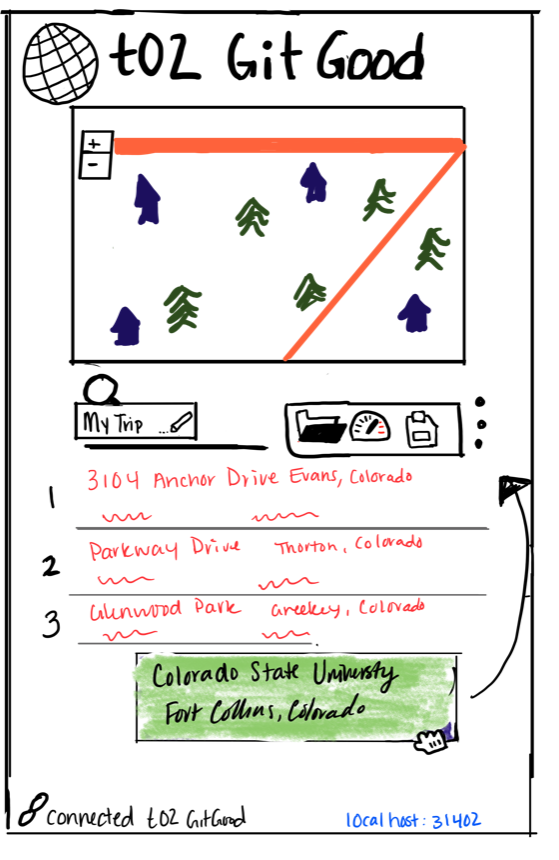 t02 Git Good
+
-
My Trip ...
1 3104 Anchor Drive Evans, Colorado
2 Parkway Drive Thorton, Colorado
3 Glenwood Park Greekey, Colorado
Colorado State University
Fort Collins, Colorado
connected t02 GitGood
localhost: 31402